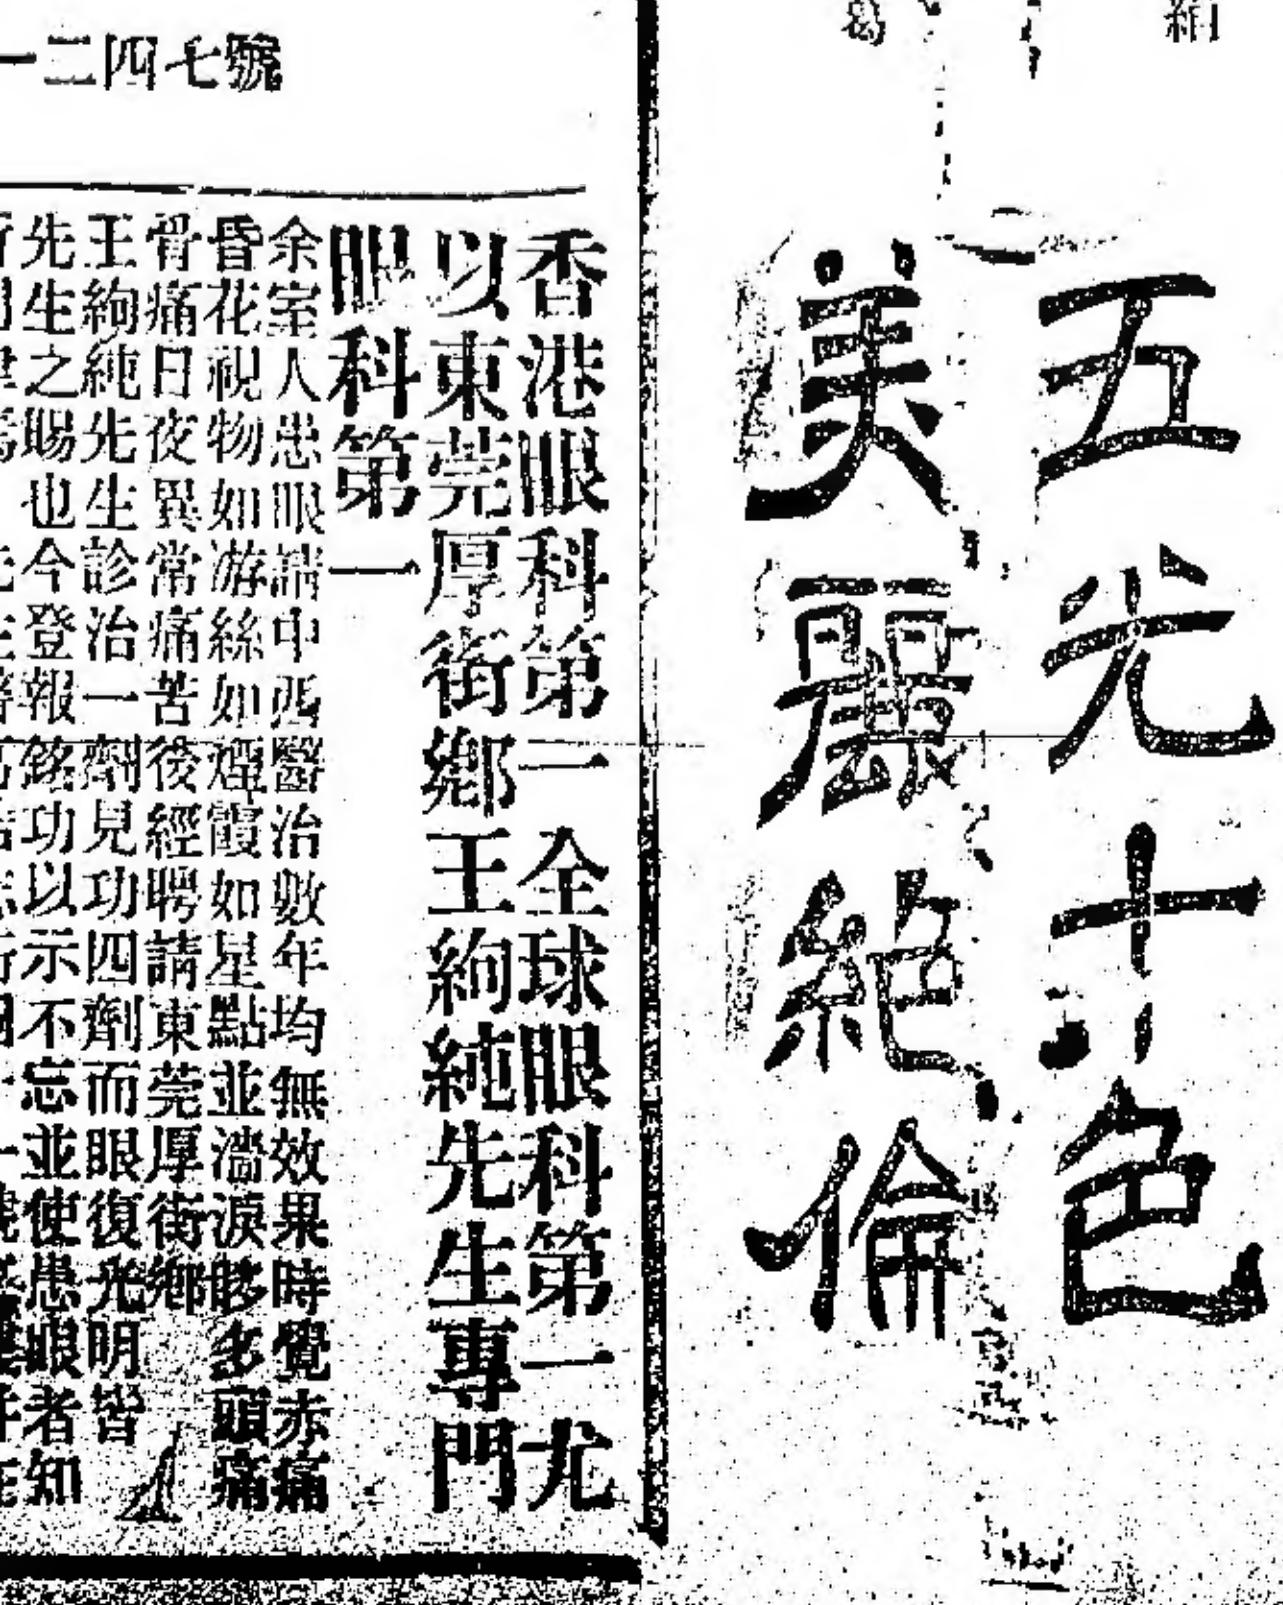 五光十色
美麗絕倫
一二四七號
香港眼科第一全球眼科第一尤
以東莞厚街鄉王絢純先生專門
眼科第一
余室人患眼請中西醫治數年均無效果時覺赤痛
昏花視物如游絲如煙霞如星點並濡淚眵多頭痛
骨痛日夜異常痛苦後經聘請東莞厚街鄉
王絢純先生診治一劑見功四劑而眼復光明皆
先生之賜也今登報銘功以示不忘並使患眼者知